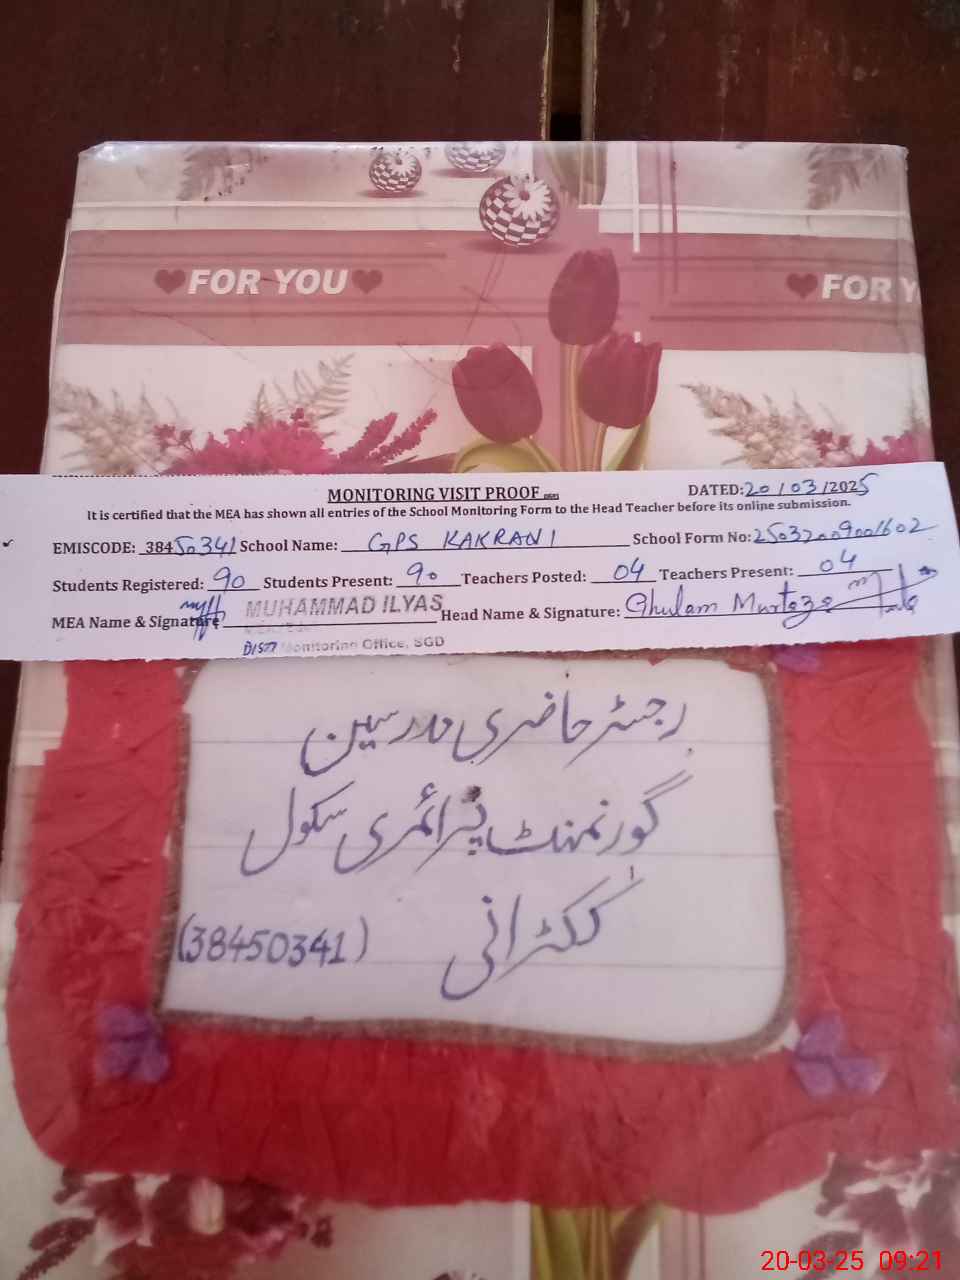 FOR YOU
FOR Y
MONITORING VISIT PROOF
DATED: 20/03/2025
It is certified that the MEA has shown all entries of the School Monitoring Form to the Head Teacher before its online submission.
EMISCODE: 38450341 School Name: GPS KAKRANI School Form No: 25032009001602
Students Registered: 90 Students Present: 90 Teachers Posted: 04 Teachers Present: 04
MEA Name & Signature MUHAMMAD ILYAS Head Name & Signature: Ghulam Murtaza
Distt Monitoring Office, SGD
رجسٹر حاضری مدرسین
گورنمنٹ پرائمری سکول
ککڑانی
(38450341)
20-03-25 09:21